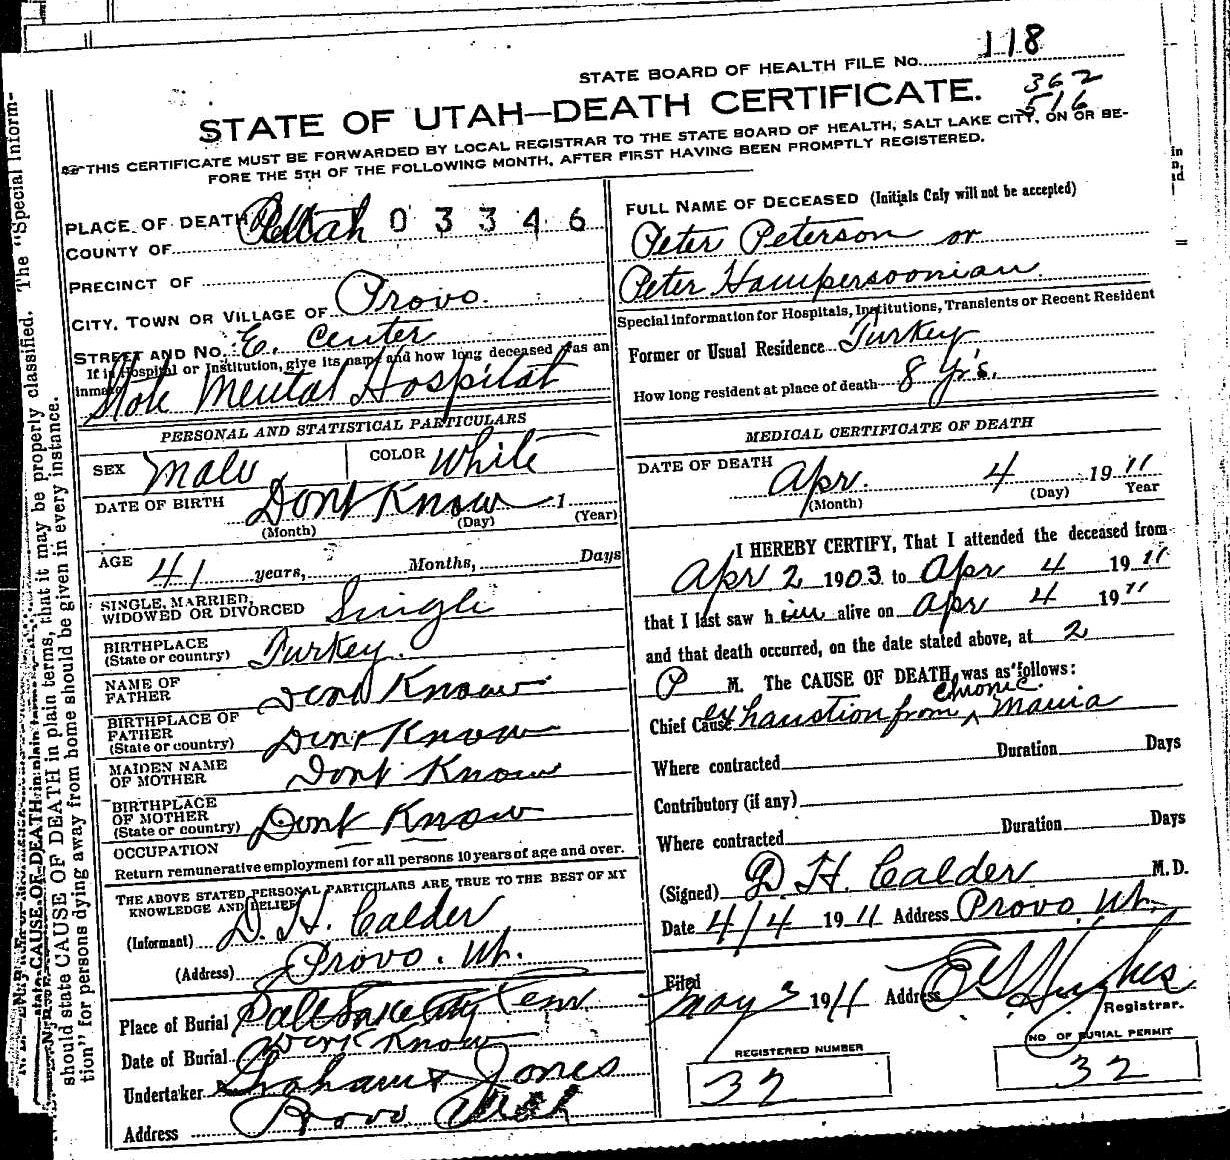 STATE BOARD OF HEALTH FILE No. 118
362
516
STATE OF UTAH—DEATH CERTIFICATE.
THIS CERTIFICATE MUST BE FORWARDED BY LOCAL REGISTRAR TO THE STATE BOARD OF HEALTH, SALT LAKE CITY, ON OR BE-
FORE THE 5TH OF THE FOLLOWING MONTH, AFTER FIRST HAVING BEEN PROMPTLY REGISTERED.
PLACE OF DEATH
COUNTY OF Utah 03346
PRECINCT OF
CITY, TOWN OR VILLAGE OF Provo.
STREET AND No. E. Center
If in Hospital or Institution, give its name and how long deceased was an
inmate
State Mental Hospital
PERSONAL AND STATISTICAL PARTICULARS
SEX Male COLOR White
DATE OF BIRTH Dont Know 1
(Month) (Day) (Year)
AGE 41 years, Months, Days
SINGLE, MARRIED,
WIDOWED OR DIVORCED Single
BIRTHPLACE
(State or country) Turkey.
NAME OF
FATHER Dont Know
BIRTHPLACE OF
FATHER
(State or country) Dont Know
MAIDEN NAME
OF MOTHER Dont Know
BIRTHPLACE
OF MOTHER
(State or country) Dont Know
OCCUPATION
Return remunerative employment for all persons 10 years of age and over.
THE ABOVE STATED PERSONAL PARTICULARS ARE TRUE TO THE BEST OF MY
KNOWLEDGE AND BELIEF
(Informant) D. H. Calder
(Address) Provo. Ut.
Place of Burial Salt Lake City Cem
Date of Burial Dont Know
Undertaker Graham & Jones
Address Provo Utah
FULL NAME OF DECEASED (Initials Only will not be accepted)
Peter Peterson or
Peter Hampersoonian
Special information for Hospitals, Institutions, Transients or Recent Resident
Former or Usual Residence Turkey
How long resident at place of death 8 Yrs.
MEDICAL CERTIFICATE OF DEATH
DATE OF DEATH Apr. 4 1911
(Month) (Day) Year
I HEREBY CERTIFY, That I attended the deceased from
Apr 2 1903 to Apr 4 1911
that I last saw him alive on Apr 4 1911
and that death occurred, on the date stated above, at 2
P M. The CAUSE OF DEATH was as follows:
Chief Cause exhaustion from chronic Mania
Where contracted Duration Days
Contributory (if any)
Where contracted Duration Days
(Signed) D H. Calder M.D.
Date 4/4 1911 Address Provo, Ut.
Filed May 3 1911 Address Hughes
Registrar.
REGISTERED NUMBER
32
NO OF BURIAL PERMIT
32
state CAUSE OF DEATH in plain
should state CAUSE OF DEATH in plain terms, that it may be properly classified. The "Special Inform-
tion" for persons dying away from home should be given in every instance.